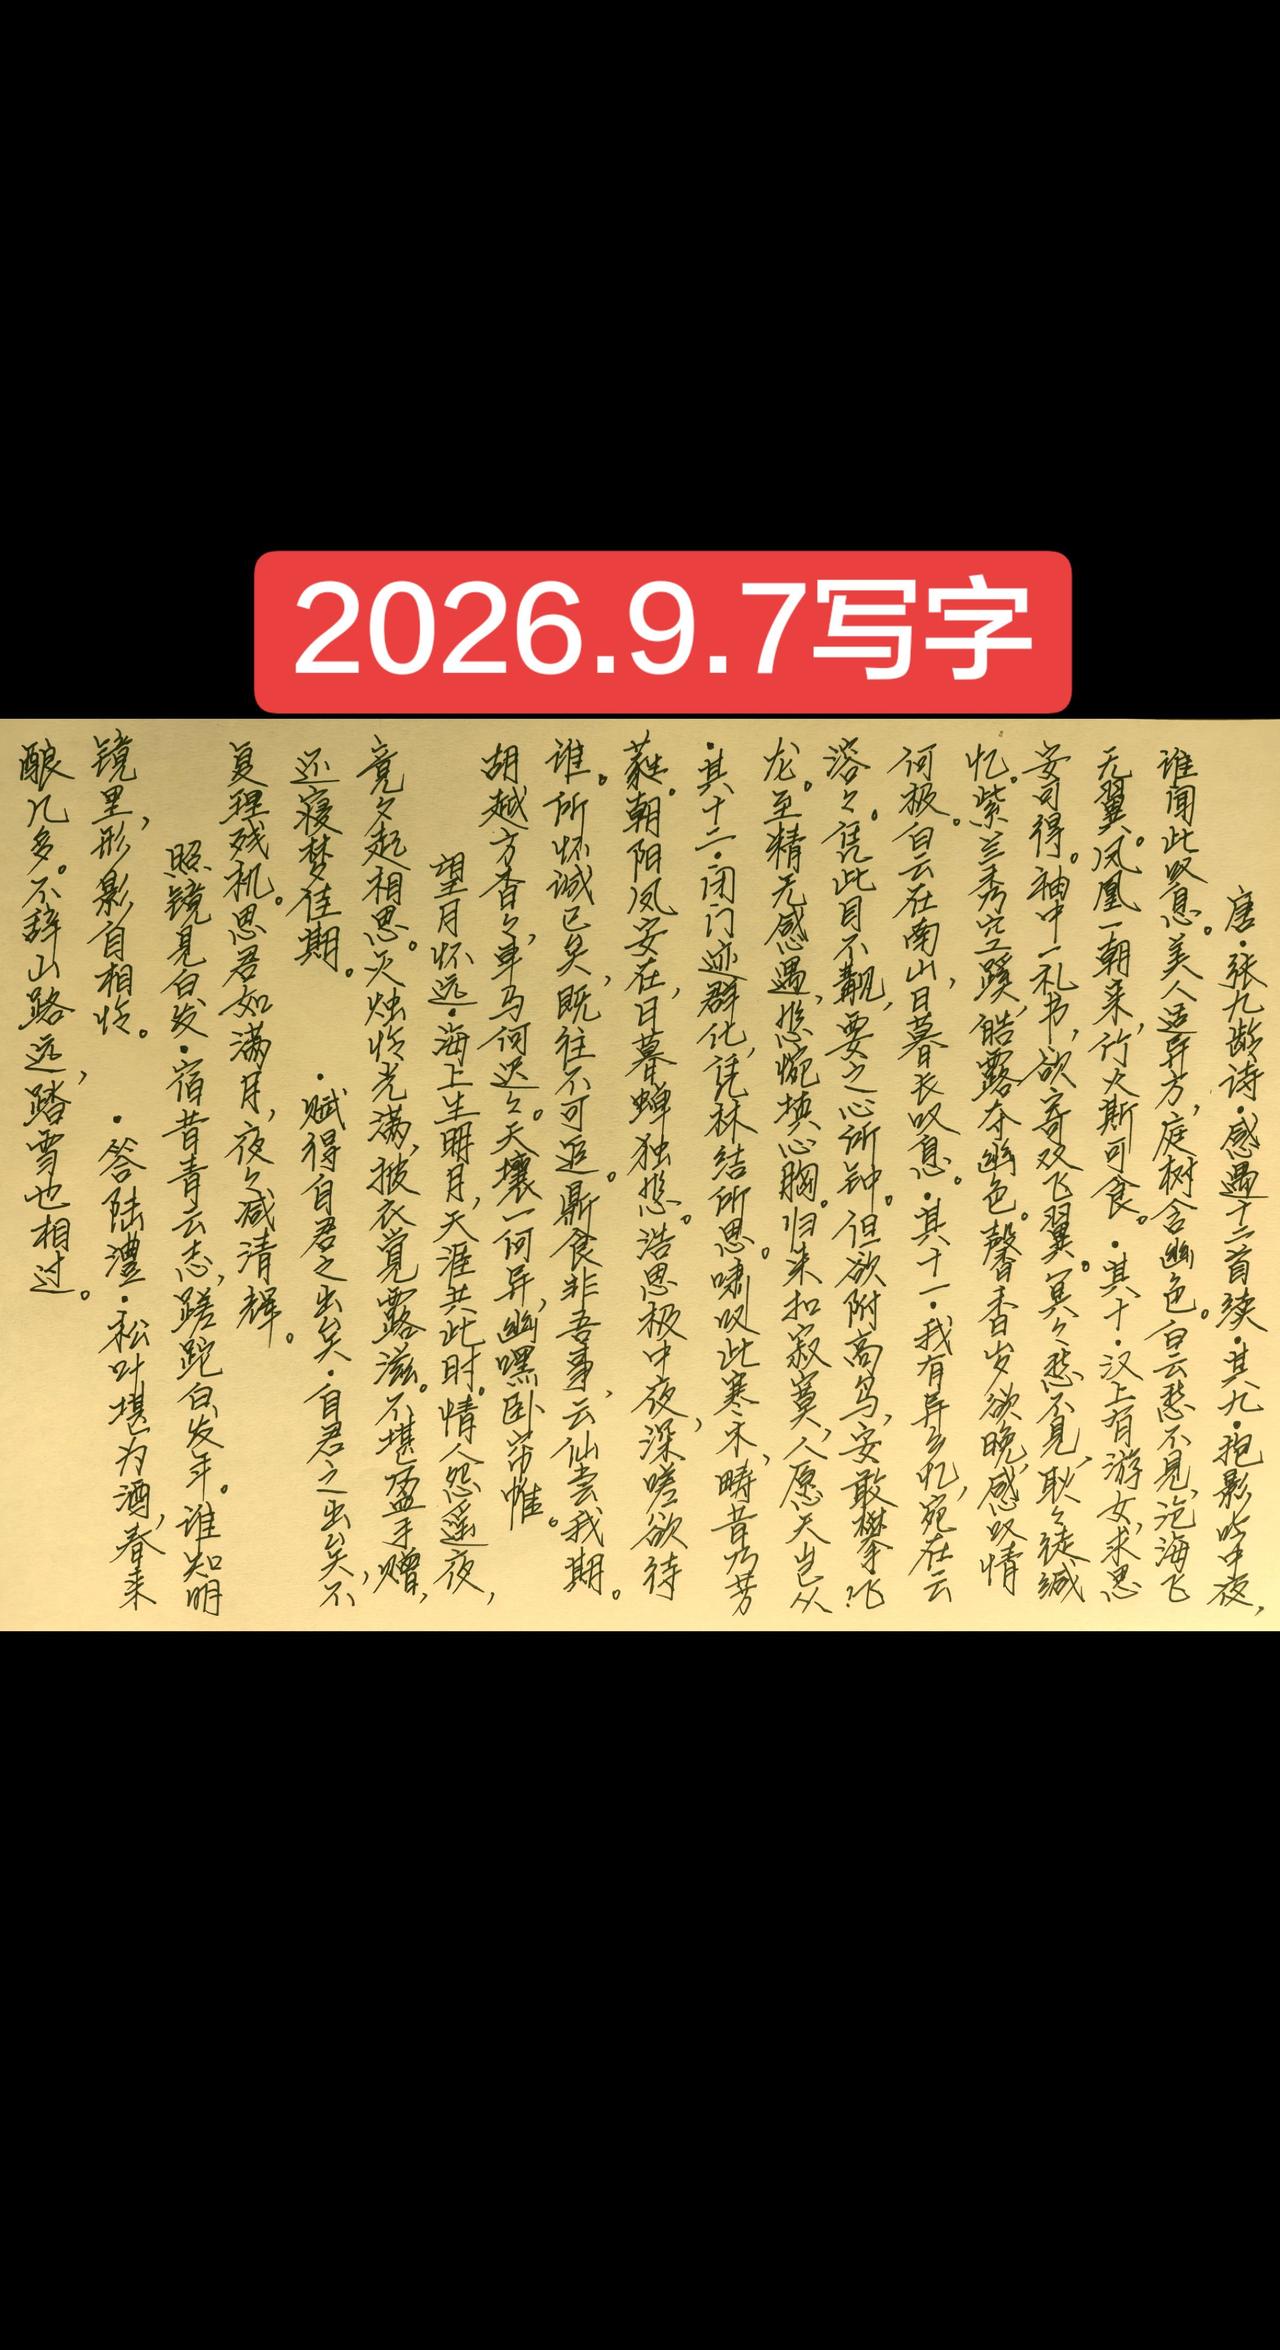 2026.9.7写字
唐·张九龄诗·感遇十二首续·其九·抱影吟中夜，
谁闻此叹息。美人适异方，庭树含幽色。白云愁不见，沧海飞
无翼。凤凰一朝来，竹火斯可食。·其十·汉上有游女，求思
安可得。袖中一札书，欲寄双飞翼。冥々愁不见，耿々徒缄
忆。紫兰秀空蹊，皓露夺幽色。馨香岁欲晚，感叹情
何极。白云在南山，日暮长叹息。·其十一·我有异乡忆，宛在云
溶々。凭此目不觏，要之心所钟。但欲附高鸟，安敢攀飞
龙。至精无感遇，悲惋填心胸。归来扣寂寞，人愿天岂从？
·其十二·闭门迹群化，凭林结所思。啸叹此寒木，畴昔乃芳
蕤。朝阳凤安在，日暮蝉独悲。浩思极中夜，深嗟欲待
谁。所怀诚已矣，既往不可追。鼎食非吾事，云仙尝我期。
胡越方杳々，车马何迟々。天壤一何异，幽嘿卧帘帷。
望月怀远·海上生明月，天涯共此时。情人怨遥夜，
竟夕起相思。灭烛怜光满，披衣觉露滋。不堪盈手赠，
还寝梦佳期。·赋得自君之出矣·自君之出矣，不
复理残机。思君如满月，夜々减清辉。
照镜见白发·宿昔青云志，蹉跎白发年。谁知明
镜里，形影自相怜。·答陆澧·松叶堪为酒，春来
酿几多。不辞山路远，踏雪也相过。